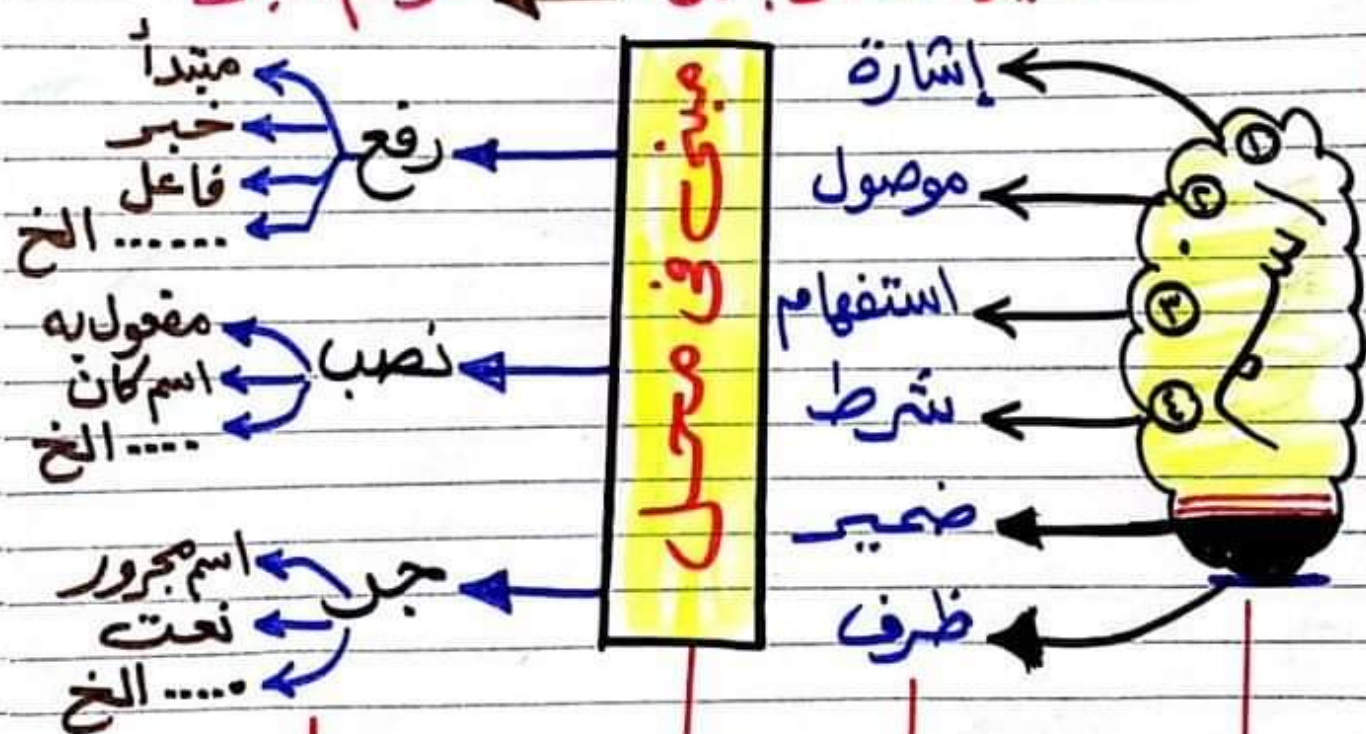 إشارة
موصول
استفهام
شرط
ضمير
ظرف
١
٢
٣
٤
مبنى فى محل
رفع
مبتدأ
خبر
فاعل
...... الخ
نصب
مفعول به
اسم كان
.... الخ
جر
اسم مجرور
نعت
..... الخ